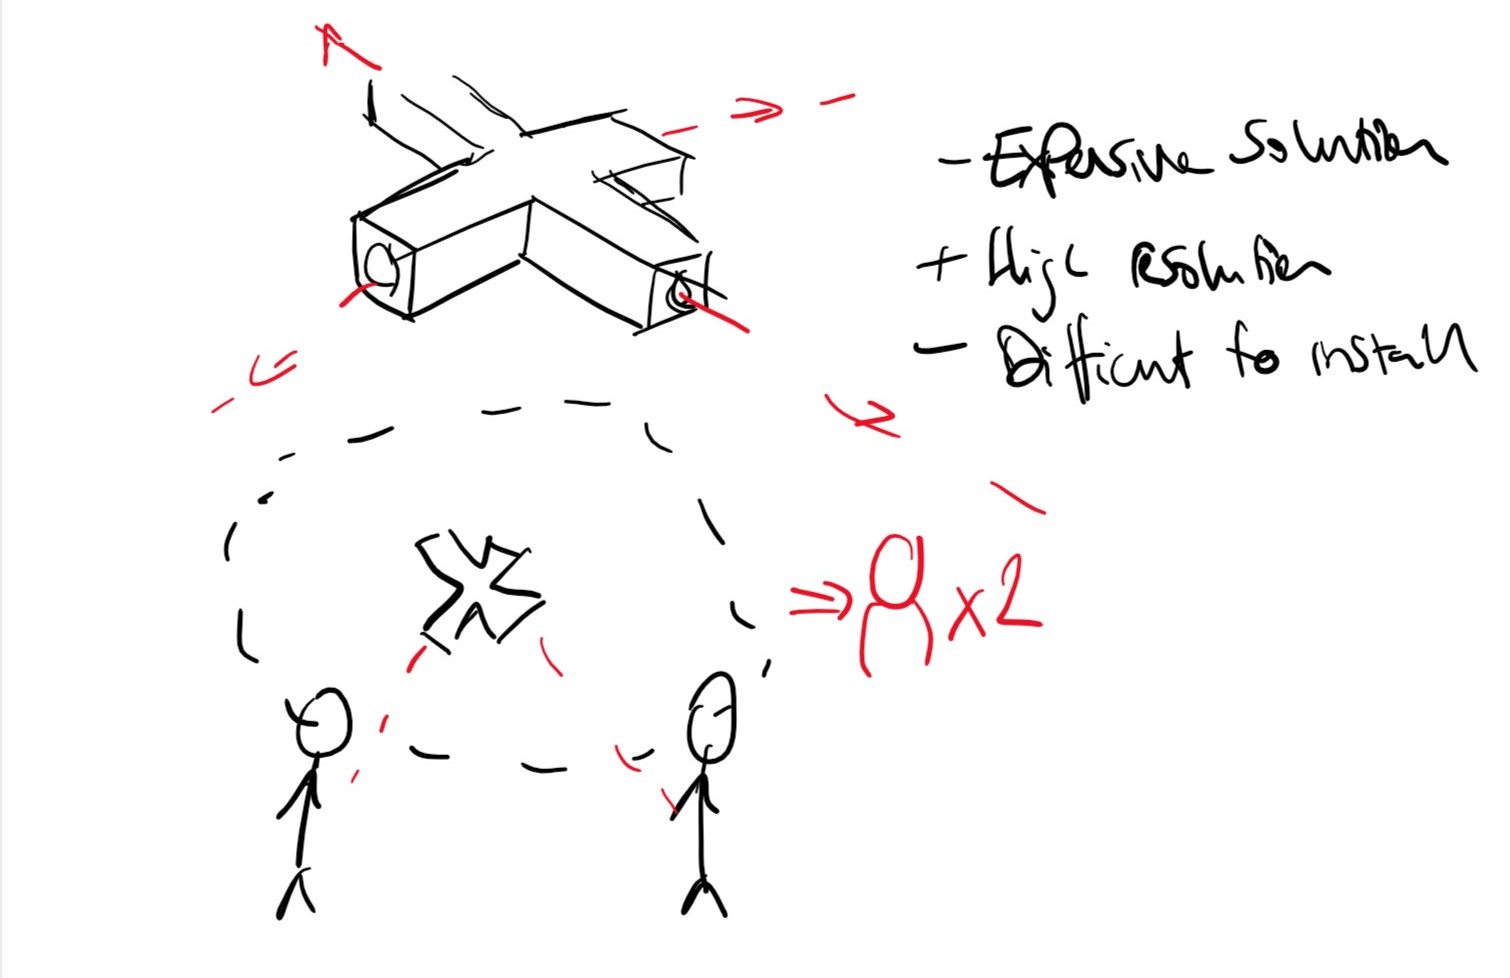 - Expensive solution
+ High resolution
- Difficult to install
x2